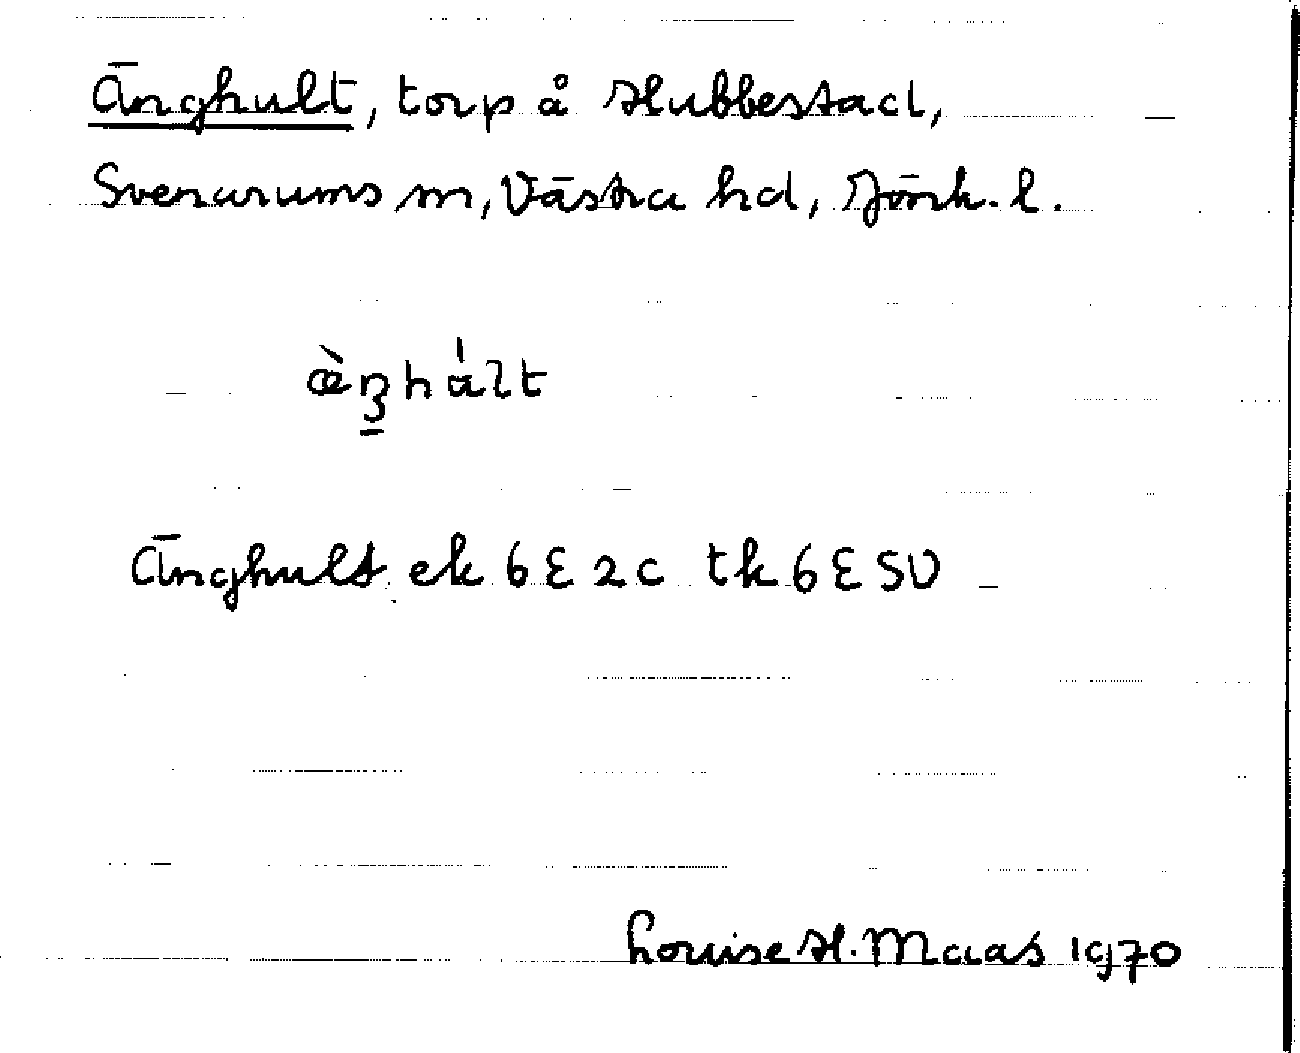 Änghult, torp å Hubbestad,
Svenarums sn, Västra hd, Jönk. l.
æ̀ŋhált
Änghult ek 6E2c tk 6ESV
Louise H. Maas 1970